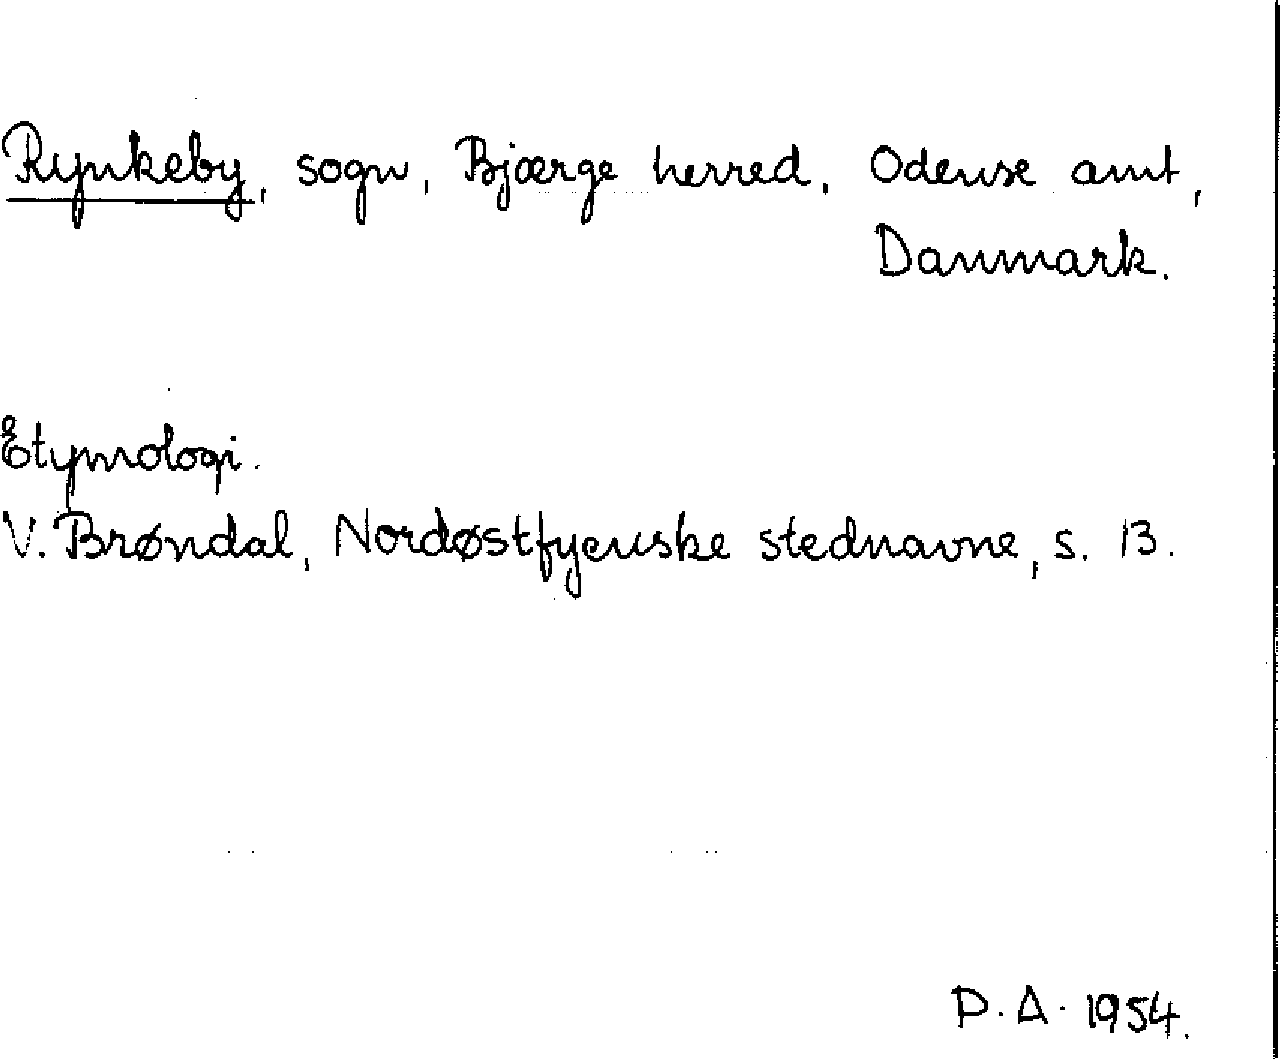 Rynkeby, sogn, Bjærge herred, Odense amt,
Danmark.
Etymologi.
V. Brøndal, Nordøstfyenske stednavne, s. 13.
P. A. 1954.